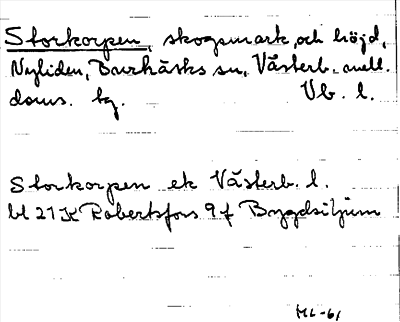 Storkorpen, skogsmark och höjd,
Nyliden, Burträsks sn, Västerb. mell.
doms. tg. Vb. l.
Storkorpen ek Västerb. l.
bl 21 K Robertsfors 9f Bygdsiljum
ML-61